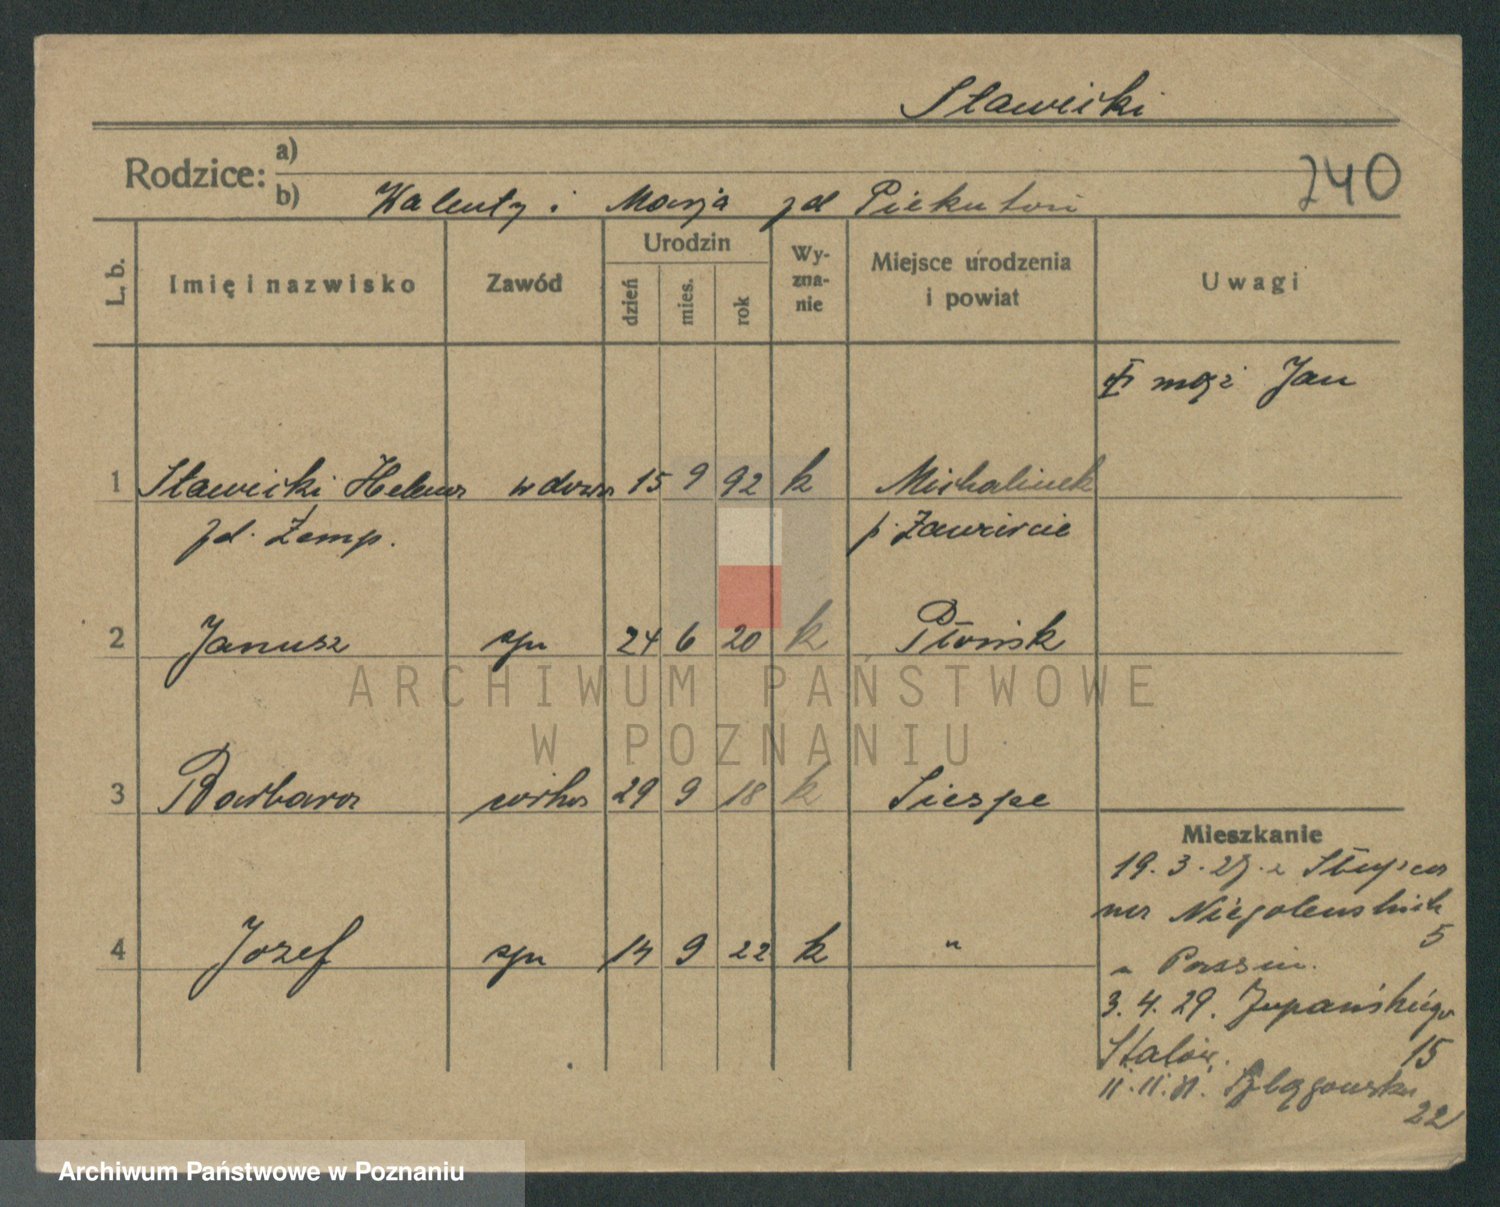 Sławiski
Rodzice: a)
b) Walenty i Marja zd Piekutoń
240
L. b.
Imię i nazwisko
Zawód
Urodzin
dzień
mies.
rok
Wy-
zna-
nie
Miejsce urodzenia
i powiat
Uwagi
mąż Jan
1 Sławiski Helena wdowa 15 9 92 k Michalinek
zd. Zemp. p. Zawiercie
2 Janusz syn 24 6 20 k Płońsk
3 Barbara córka 29 9 18 k Sierpc
4 Józef syn 14 9 22 k "
Mieszkanie
19. 3. 29. z Słupca
na Niegolewskich
5
3. 4. 29. Żupańskiego
15
11. 11. 31.
22
ARCHIWUM PAŃSTWOWE
W POZNANIU
Archiwum Państwowe w Poznaniu